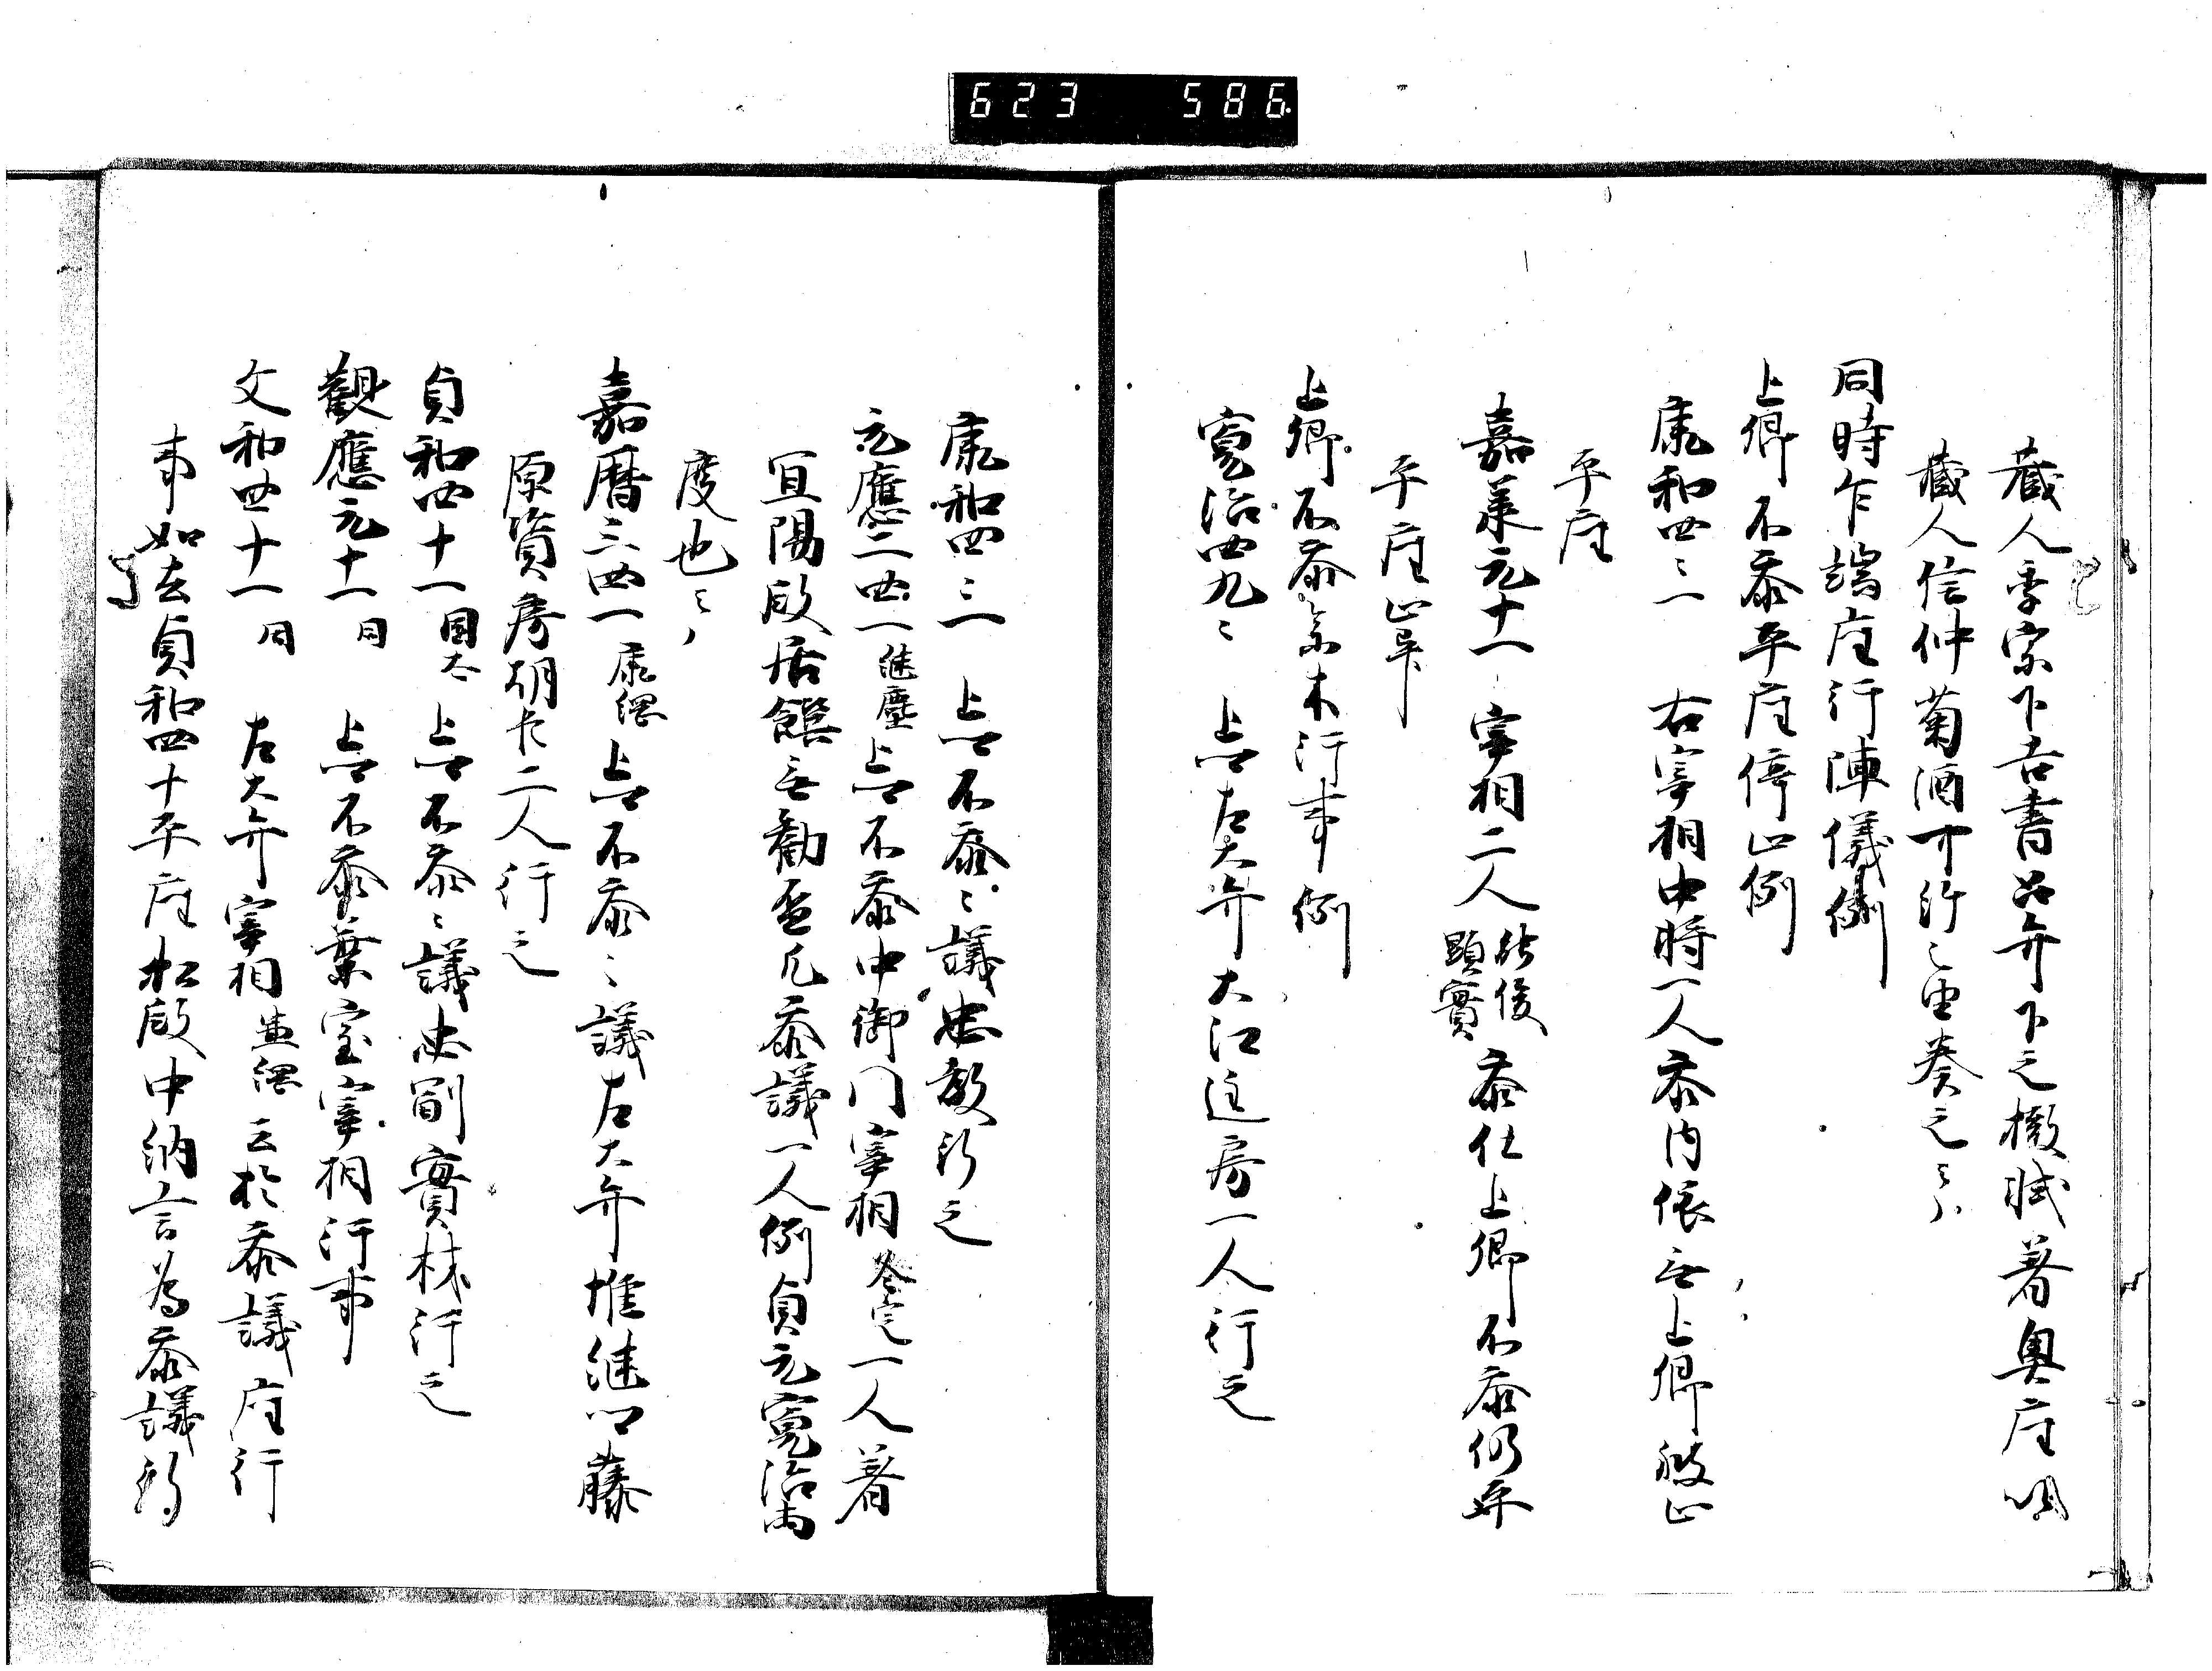 623 586
蔵人季宗下吉書召弁下之撤軾著奥座
蔵人信仲菊酒可行之由奏之云々
同時乍端座行陣儀例
上卿不参平座停止例
康和四三一 右宰相中将一人参内依無上卿被止
平座
嘉承元十一 宰相二人 能俊 顕實 参仕上卿不参仍
平座止畢
上卿不参参木行事例
寛治四九々 上卿左大弁大江匡房一人行之
康和四三一 上卿不参々議忠教行之
元應二四一 継塵 上卿不参中御門宰相 一人著
宜陽殿居饌無勧盃凡参議一人例貞元寛治両
度也云々
嘉暦三四一 上卿不参々議左大弁惟継卿藤
原資房朝臣二人行之
貞和四十一 園太 上卿不参々議忠嗣實材行之
観應元十一 同 上卿不参葉室宰相行事
文和四十一 同 左大弁宰相 云於参議座行
事如去貞和四十平座松殿中納言為参議